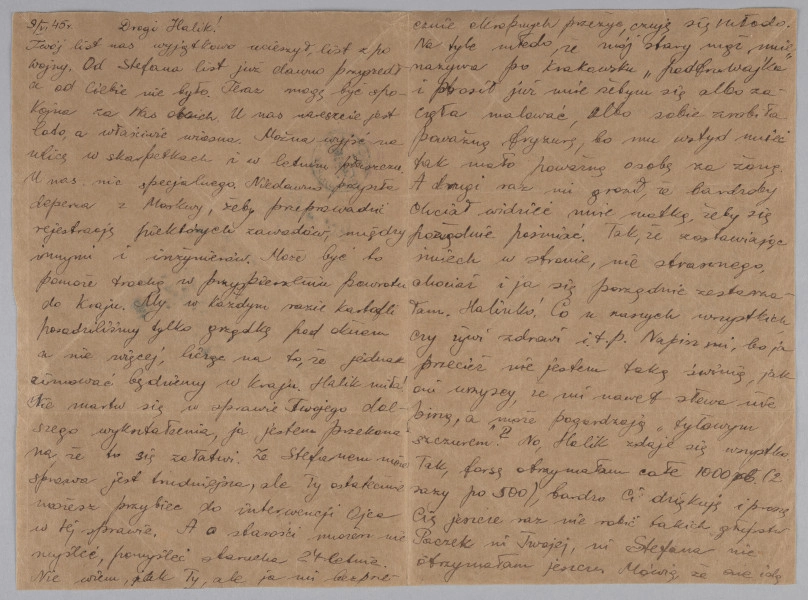 9/VI 45 r. Drogi Halik!
Twój list nas wyjątkowo ucieszył, list z po
wojny. Od Stefana list już dawno przyszedł
a od Ciebie nie było. Teraz mogę być spo-
kojna za Was oboich. U nas wreszcie jest
lato, a właściwie wiosna. Można wyjść na
ulicę w skarpetkach i w letnim płaszczu.
U nas nic specjalnego. Niedawno przyszła
depesza z Moskwy, żeby przeprowadzić
rejestrację niektórych zawodów, między
innymi i inżynierów. Może być to
pomoże trochę w przyspieszeniu powrotu
do Kraju. My w każdym razie kartofli
posadziliśmy tylko grządkę pod oknem
a nie więcej, licząc na to, że jednak
zimować będziemy w kraju. Halik miła
Nie martw się w sprawie Twojego dal-
szego wykształcenia, ja jestem przekona-
na że to się załatwi. Ze Stefanem
sprawa jest trudniejsza, ale Ty ostatecznie
możesz przybiec do interwencji Ojca
w tej sprawie. A o starości musem nie
myśleć, pomyśleć starucha 24-letnia.
Nie wiem, jak Ty, ale ja mi
okropnych przeżyć, czuję się młodo.
Na tyle młodo, że mój stary mąż, mnie
nazywa po krakowsku "
i prosił już mnie żebym się albo za-
częła malować, albo sobie zrobiła
poważną fryzurę, bo mu wstyd mieć
tak mało poważną osobę za żonę.
A drugi raz mi groził że bardzoby
chciał widzieć mnie matką, żeby się
porządnie pośmiać. Tak, że zostawiając
śmiech w stronie, nic strasznego,
chociaż i ja się porządnie zestarza-
łam. Halinko! Co u naszych wszystkich
czy żywi zdrowi i.t.p. Napisz mi, bo ja
przecież nie jestem taką świnią, jak
oni wszyscy, że mi nawet słowa nie
piszą, a może pogardzają "tyłowym
szczurem"? No, Halik zdaje się wszystko.
Tak, forsę otrzymałam całe 1000 rb. (2
razy po 500), bardzo Ci dziękuję i proszę
Cię jeszcze raz nie robić takich głupstw
Paczek ni Twojej, ni Stefana nie
otrzymałam jeszcze. Mówią, że one idą